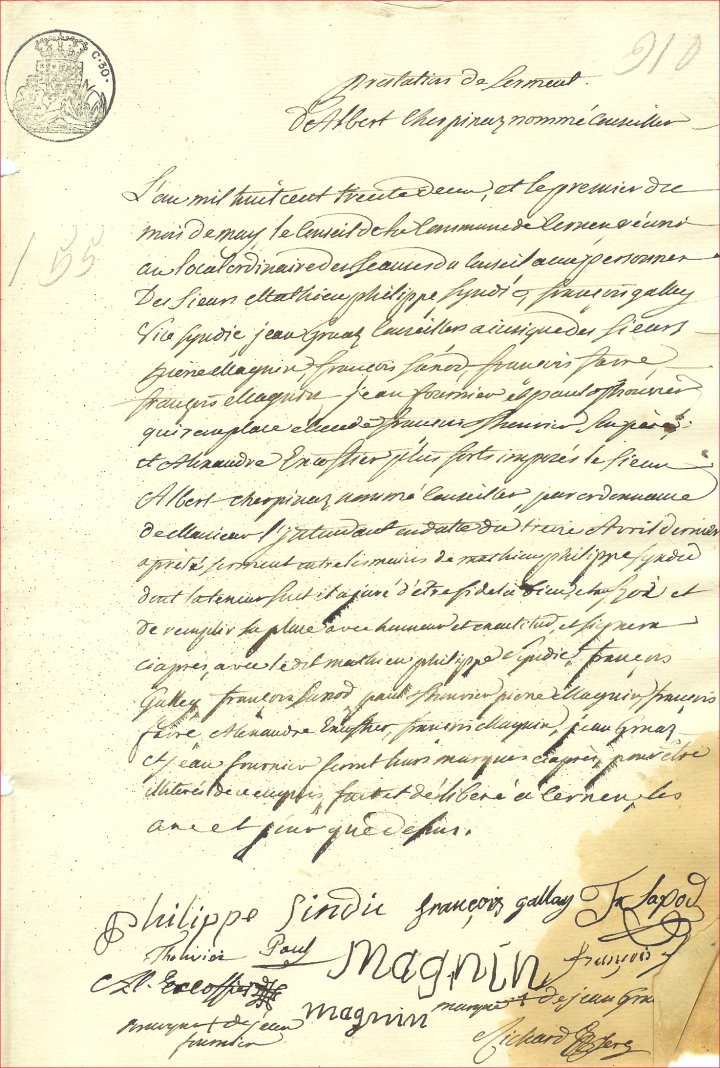 C. 50.
910
prestation de Serment
D'Albert Cherpinaz nommé Conseiller
155
L'an mil huit cent trente deux, et le premier du
mois de may, le Conseil de la Commune de Cernex réuni
au local ordinaire des Seances du Conseil aux personnes
Des Sieurs Mathieu philippe Syndic, françois gallay
Vice Syndic jean Gruaz Conseillers ainsi que des Sieurs
pierre Magnin, françois Sapod, françois favre
françois Magnin, jean fournier et paul Thouvier
qui remplace françois Thouvier Son père,
et Alexandre Encoffier plus forts imposés le Sieur
Albert Cherpinaz nommé Conseiller, par ordonnance
de Monsieur l'jntendant en datte du treize Avril dernier
a prêté serment entre les mains de mathieu philippe Syndic
dont la teneur Suit il a juré d'être fidel à Dieu et au Roi et
de remplir sa place avec honneur et exactitud, et signera
ciaprès avec le dit mathieu philippe Syndic françois
Gallay françois Sapod, paul Thouvier pierre Magnin françois
favre, Alexandre Encoffier, françois Magnin, jean Gruaz
et jean fournier feront leurs marques ciaprès, pour être
illiterés de ce enquis, fait et délibéré à Cernex, les
ans et jour que dessus.
Philippe Sindic françois gallay Fs Sapod
Thouvier Paul Magnin françois
Al. Encoffier
magnin marque + de jean Gru
marque + de jean
fournier
Richard